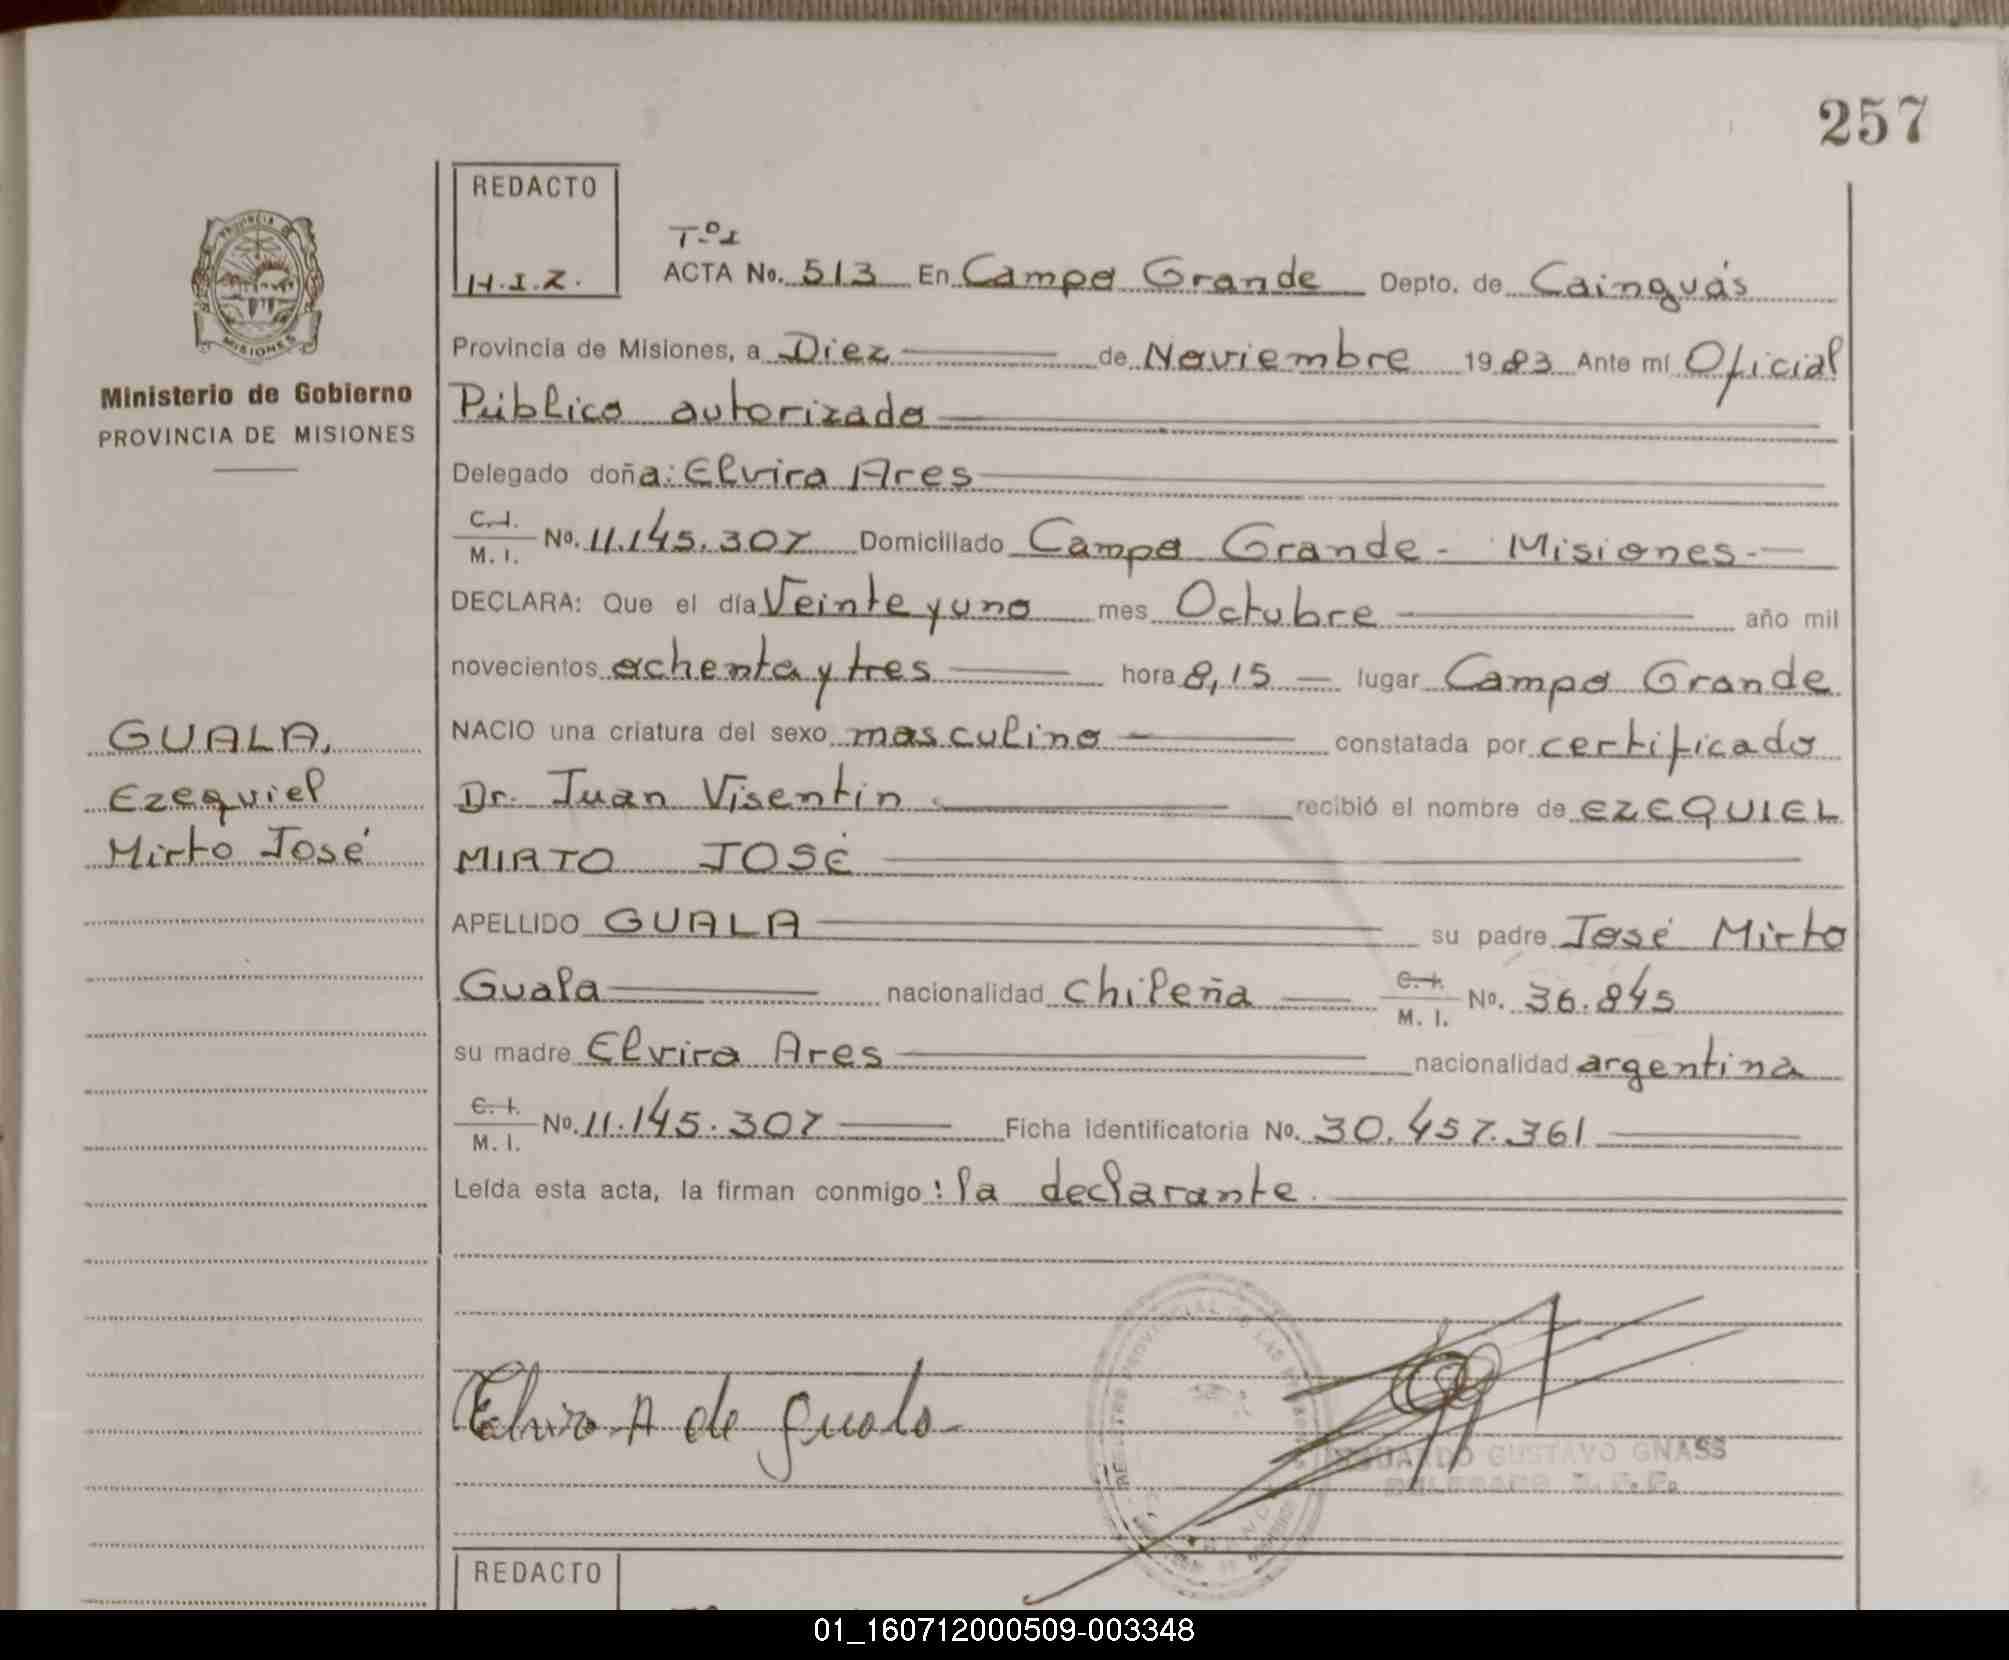 257
REDACTO
H.I.Z.
T.º1
ACTA No. 513 En Campo Grande Depto. de Cainguás
Provincia de Misiones, a Diez de Noviembre 1983 Ante mí Oficial
Público autorizado
Delegado doña: Elvira Ares
C.I. M. I. No. 11.145.307 Domiciliado Campo Grande - Misiones.-
DECLARA: Que el día Veinte y uno mes Octubre año mil
novecientos ochenta y tres hora 8,15 lugar Campo Grande
NACIO una criatura del sexo masculino constatada por certificado
Dr. Juan Visentin recibió el nombre de EZEQUIEL
MIRTO JOSÉ
APELLIDO GUALA su padre José Mirto
Guala nacionalidad chileña C. I. M. I. No. 36.845
su madre Elvira Ares nacionalidad argentina
C. I. M. I. No. 11.145.307 Ficha identificatoria No. 30.457.361
Leída esta acta, la firman conmigo: la declarante.
PROVINCIA DE
MISIONES
Ministerio de Gobierno
PROVINCIA DE MISIONES
GUALA,
Ezequiel
Mirto José
Elvira A de Guala
REGISTRO PROVINCIAL DE LAS
GUSTAVO GNASS
DELEGADO
REDACTO
01_160712000509-003348